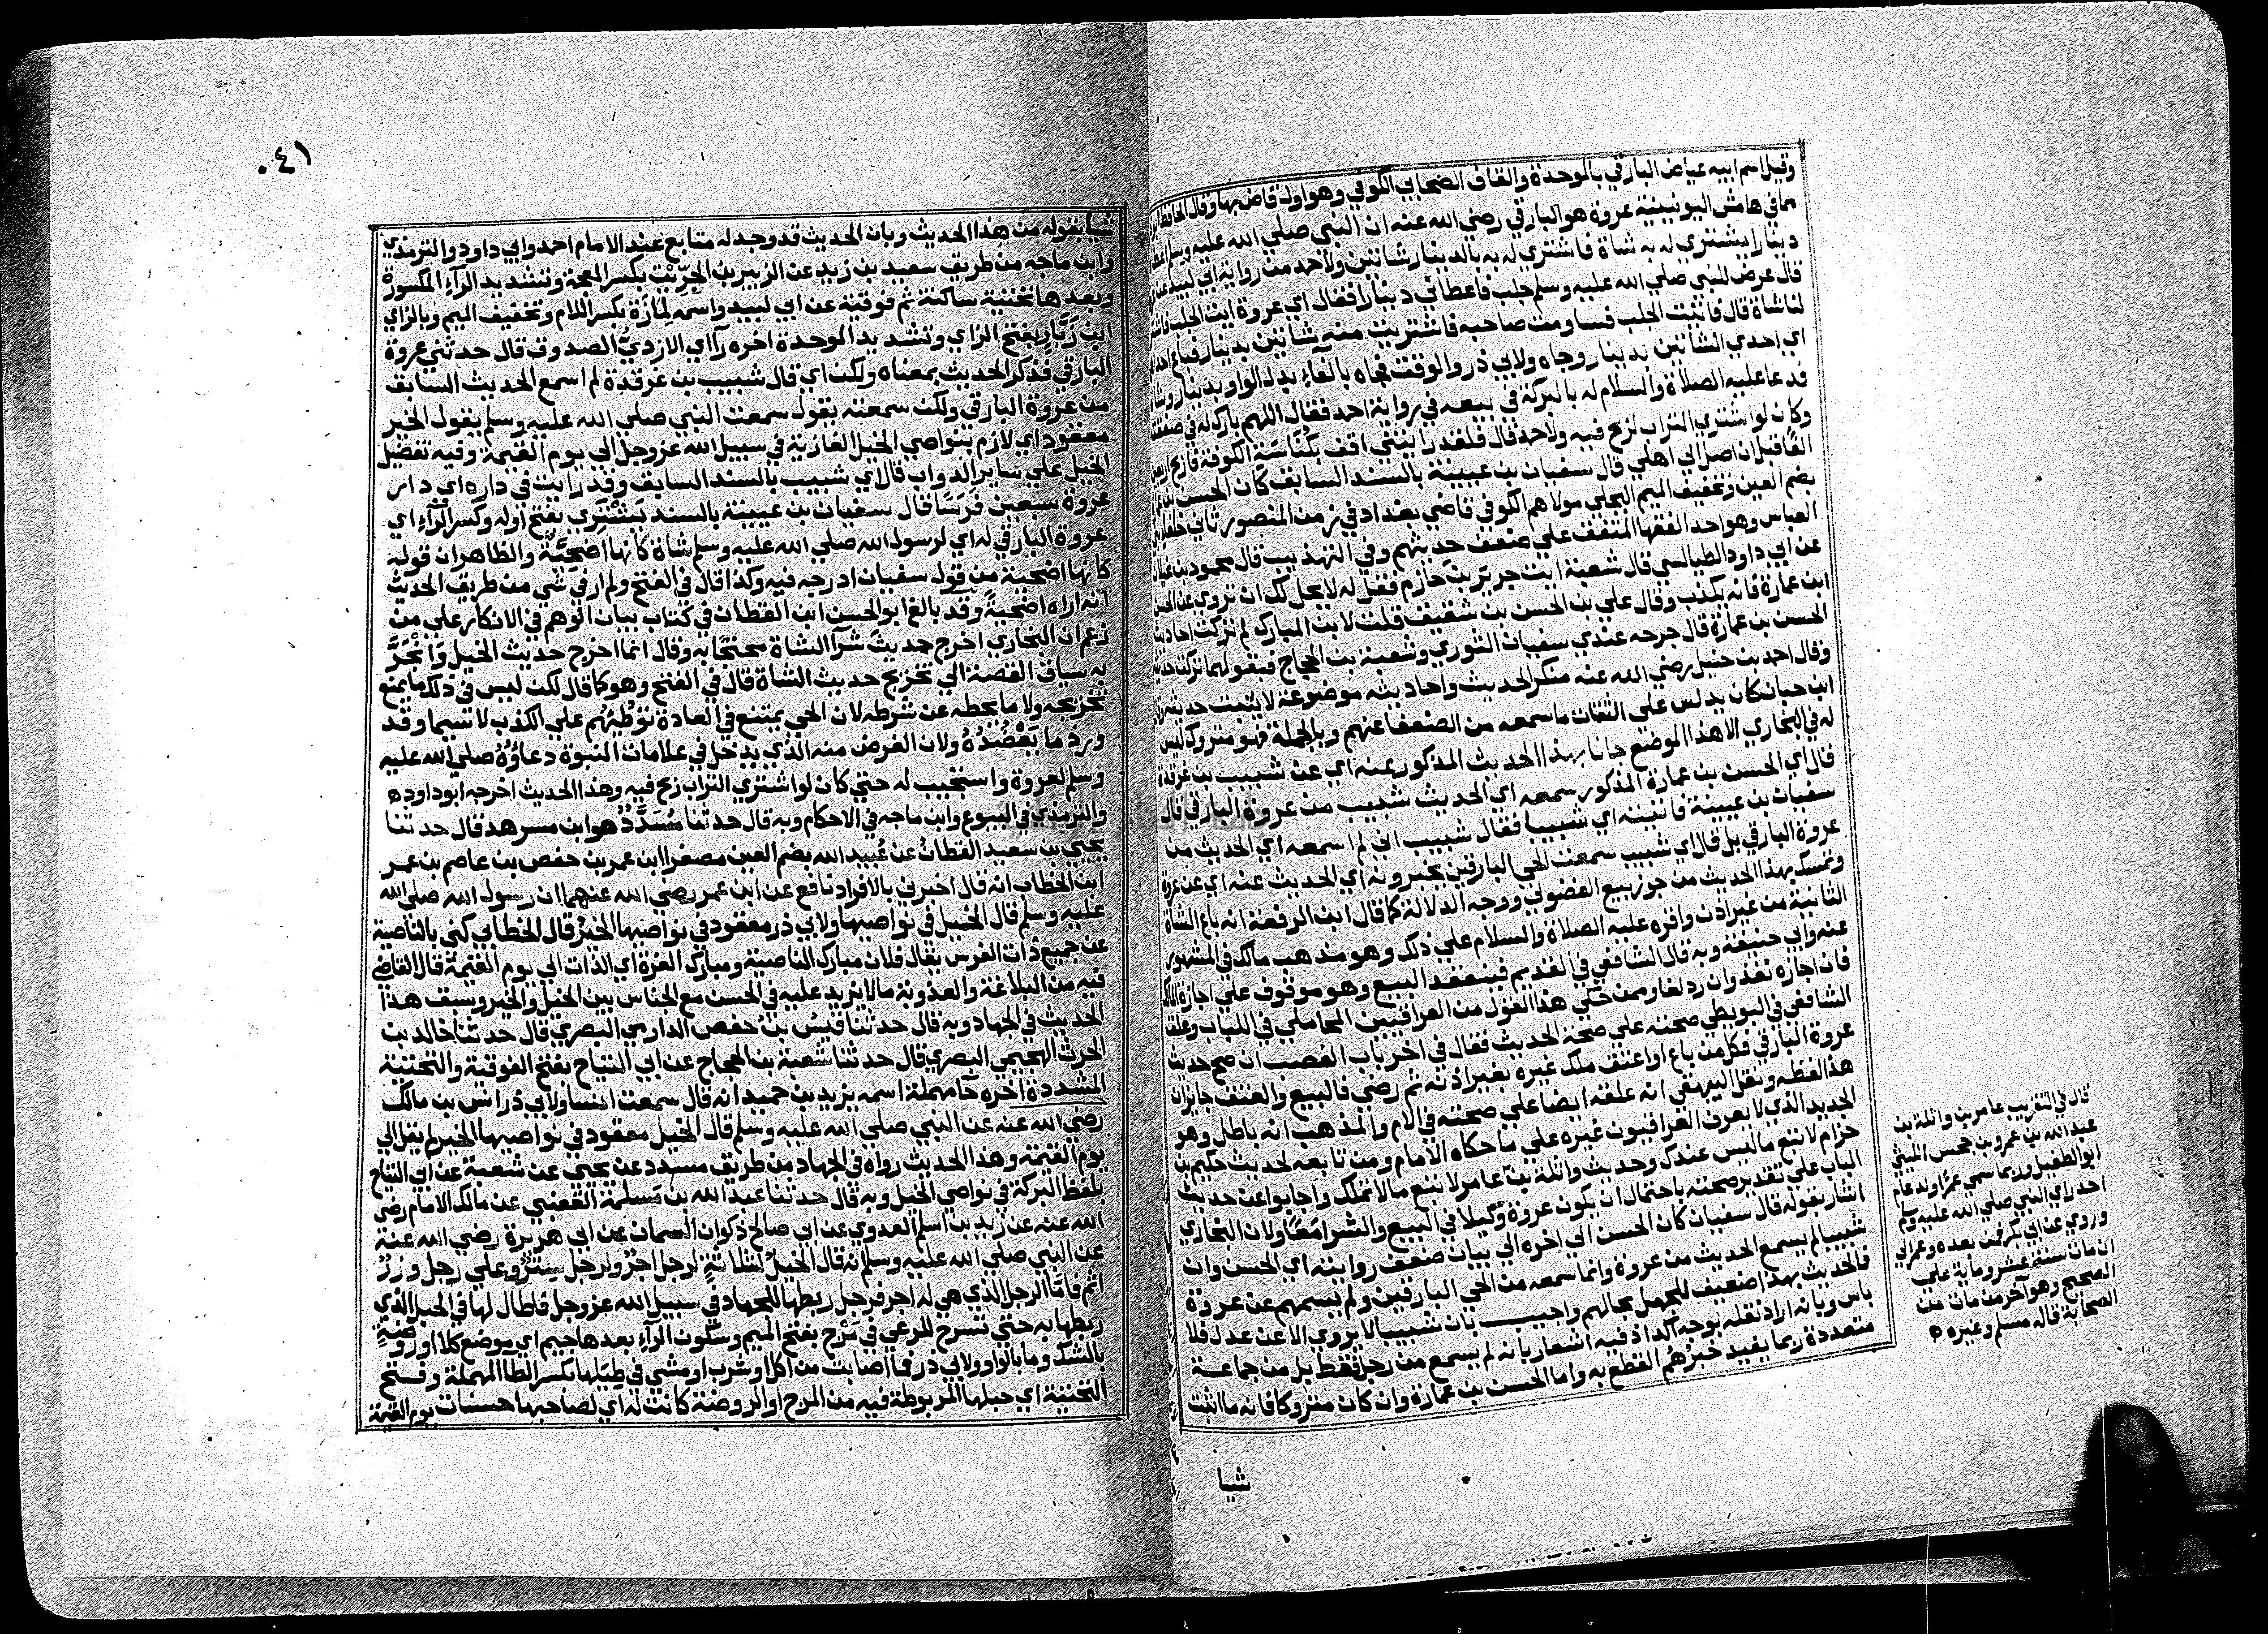 وقيل اسم ابيه عياض البارقي بالموحدة والقاف الصحابي الكوفي وهو اول قاض بها وقال الحافظ
مما في هامش اليونينية عروة هو البارقي رضي الله عنه ان النبي صلي الله عليه وسلم اعطاه
دينارا يشتري له به شاة فاشتري له به بالدينار شاتين ولاحمد من رواية ابي لبيد عن
قال عرض للنبي صلي الله عليه وسلم جلب فاعطاني دينارا فقال اي عروة ايت الجلب فاشتر
لنا شاة قال فاتيت الجلب فساومت صاحبه فاشتريت منه شاتين بدينار فباع احداهما
اي احدي الشاتين بدينار وجاه ولابي ذر والوقت فجاه بالفاء بدل الواو بدينار وشاة
فدعا عليه الصلاة والسلام له بالبركة في بيعه في رواية احمد فقال اللهم بارك له في صفقته
وكان لو اشتري التراب لربح فيه ولاحمد قال فلقد رايتني اقف بكناسة الكوفة فاربح اربعين
الفا قبل ان اصل الي اهلي قال سفيان بن عيينة بالسند السابق كان الحسن بن عمارة
بضم العين وتخفيف الميم البجلي مولاهم الكوفي قاضي بغداد في زمن المنصور ثاني خلفاء بني
العباس وهو احد الفقها المتفق علي ضعف حديثهم وفي التهذيب قال محمود بن غيلان
عن ابي داود الطيالسي قال شعبة ايت جرير بن حازم فقل له لا يحل لك ان تروي عن الحسن
ابن عمارة فانه يكذب وقال علي بن الحسن بن شقيق قلت لابن المبارك لم تركت احاديث
الحسن بن عمارة قال جرحه عندي سفيان الثوري وشعبة بن الحجاج فبقولهما تركت حديثه
وقال احمد بن حنبل رضي الله عنه منكر الحديث واحاديثه موضوعة لا يكتب حديثه وقال
ابن حبان كان يدلس علي الثقات ما سمعه من الضعفا عنهم وبالجملة فهو متروك ليس
له في البخاري الا هذا الموضع جانا بهذا الحديث المذكور عنه اي عن شبيب بن غرقدة
قال اي الحسن بن عمارة المذكور سمعه اي الحديث شبيب من عروة البارقي قال
سفيان بن عيينة فاتيته اي شبيبا فقال شبيب اني لم اسمعه اي الحديث من
عروة البارقي بل قال اي شبيب سمعت الحي البارقيين يخبرونه اي الحديث عنه اي عن عروة
وتمسك بهذا الحديث من جوز بيع الفضولي ووجه الدلالة كما قال ابن الرفعة انه باع الشاة
الثانية من غير اذن واقره عليه الصلاة والسلام علي ذلك وهو مذهب مالك في المشهور
عنه وابي حنيفة وبه قال الشافعي في القديم فينعقد البيع وهو موقوف علي اجازة المالك
فان اجازه نفذ وان رد لغا وممن حكي هذا القول من العراقيين المحاملي في اللباب وعلق
الشافعي في البويطي صحته علي صحة الحديث فقال في اخر باب الغصب ان صح حديث
عروة البارقي فكل من باع او اعتق ملك غيره بغير اذنه ثم رضي فالبيع والعتق جايزان
هذا لفظه ونقل البيهقي انه علقه ايضا علي صحته في الام والمذهب انه باطل وهو
الجديد الذي لا يعرف العراقيون غيره علي ما حكاه الامام ومن تابعه لحديث حكيم بن
حزام لا تبع ما ليس عندك وحديث واثلة بن عامر لا تبع ما لا تملك واجابوا عن حديث
الباب علي تقدير صحته باحتمال ان يكون عروة وكيلا في البيع والشرا معا ولان البخاري
اشار بقوله قال سفيان كان الحسن الي اخره الي بيان ضعف روايته اي الحسن وان
شبيبا لم يسمع الحديث من عروة وانما سمعه من الحي البارقيين ولم يسمهم عن عروة
فالحديث بهذا ضعيف للجهل بحالهم واجيب بان شبيبا لا يروي الا عن عدل فلا
باس وبانه اراد نقله بوجه اكد اذ فيه اشعار بانه لم يسمع من رجل فقط بل من جماعة
متعددة ربما يفيد خبرهم القطع به واما الحسن بن عمارة وان كان متروكا فانه ما اثبت
شيا
قال في التقريب عامر بن واثلة بن
عبد الله بن عمرو بن جحش الليثي
ابو الطفيل وربما سمي عمرا ولد عام
احد راي النبي صلي الله عليه وسلم
وروي عن ابي بكر فمن بعده وعمر الي
ان مات سنة عشر وماية علي
الصحيح وهو آخر من مات من
الصحابة قاله مسلم وغيره
٠٤١
شيا بقوله من هذا الحديث وبان الحديث قد وجد له متابع عند الامام احمد وابي داود والترمذي
وابن ماجه من طريق سعيد بن زيد عن الزبير بن الخِرِّيت بكسر المعجمة وتشديد الرآء المكسورة
وبعدها تحتية ساكنة ثم فوقية عن ابي لبيد واسمه لِمَازَة بكسر اللام وتخفيف الميم وبالزاي
ابن زَبَّار بفتح الزاي وتشديد الموحدة اخره رآ اي الازديُّ الصدوق قال حدثني عروة
البارقي فذكر الحديث بمعناه ولكن اي قال شبيب بن غرقدة لم اسمع الحديث السابق
من عروة البارقي ولكن سمعته يقول سمعت النبي صلي الله عليه وسلم يقول الخير
معقود اي لازم بنواصي الخيل الغازية في سبيل الله عز وجل الي يوم القيمة وفيه تفضيل
الخيل علي ساير الدواب قال اي شبيب بالسند السابق وقد رايت في داره اي دار
عروة سبعين فَرَسًا قال سفيان بن عيينة بالسند يَشْتَرِي بفتح اوله وكسر الرآء اي
عروة البارقي له اي لرسول الله صلي الله عليه وسلم شاة كانها اضحيَّةٌ والظاهر ان قوله
كانها اضحية من قول سفيان ادرجه فيه وكذا قال في الفتح ولم ار في شي من طرق الحديث
انه اراه اضحية وقد بالغ ابو الحسن ابن القطان في كتاب بيان الوهم في الانكار علي من
زعم ان البخاري اخرج حديث شرآ الشاة محتجًا به وقال انما اخرج حديث الخيل وانجَرَّ
به سياق القصة الي تخريج حديث الشاة قال في الفتح وهو كما قال لكن ليس في ذلك ما يمنع
تخريجه ولا ما يحطه عن شرطه لان الحي يمتنع في العادة تَوَطُّؤُهم علي الكذب لا سيما وقد
ورد ما يَعْضُدُهُ ولان الغرض منه الذي يدخل في علامات النبوة دعاؤه صلي الله عليه
وسلم لعروة واستجيب له حتي كان لو اشتري التراب ربح فيه وهذا الحديث اخرجه ابو داود
والترمذي في البيوع وابن ماجه في الاحكام وبه قال حدثنا مُسَدَّدٌ هو ابن مسرهد قال حدثنا
يحيي بن سعيد القطان عن عُبيد الله بضم العين مصغرا ابن عمر بن حفص بن عاصم بن عمر
ابن الخطاب انه قال اخبرني بالافراد نافع عن ابن عمر رضي الله عنهما ان رسول الله صلي الله
عليه وسلم قال الخيل في نواصيها ولابي ذر معقود في نواصيها الخيرُ قال الخطابي كني بالناصية
عن جميع ذات الفرس يقال فلان مبارك الناصية ومبارك الغرة اي الذات الي يوم القيمة قال القاضي
فيه من البلاغة والعذوبة ما لا يزيد عليه في الحسن مع الجناس بين الخيل والخير وسبق هذا
الحديث في الجهاد وبه قال حدثنا قيسُ بن حفص الدارمي البصري قال حدثنا خالد بن
الحرث الهجيمي البصري قال حدثنا شعبة بن الحجاج عن ابي التياح بفتح الفوقية والتحتية
المشددة اخره حآ مهملة اسمه يزيد بن حميد انه قال سمعت انسا ولابي ذر انس بن مالك
رضي الله عنه عن النبي صلي الله عليه وسلم قال الخيل معقود في نواصيها الخير لم يقل الي
يوم القيمة وهذا الحديث رواه في الجهاد من طريق مسدد عن يحيي عن شعبة عن ابي التياح
بلفظ البركة في نواصي الخيل وبه قال حدثنا عبد الله بن مَسلمة القعنبي عن مالك الامام رضي
الله عنه عن زيد بن اسلم العدوي عن ابي صالح ذكوان السمان عن ابي هريرة رضي الله عنه
عن النبي صلي الله عليه وسلم انه قال الخيلُ لثلاثةٍ لرجل اجرٌ ولرجل سِترٌ وعلي رجل وزرٌ
اثم فامَّا الرجل الذي هي له اجر فرجل ربطها للجهاد في سبيل الله عز وجل فاطال لها في الحبل الذي
ربطها به حتي تسرح للرعي في مَرْج بفتح الميم وسكون الرآء بعدها جيم اي موضع كلا او روضةٍ
بالشك وما بالواو ولابي ذر فما اصابت من اكل او شرب او مشي في طِيَلها بكسر الطا المهملة وفتح
التحتية اي حبلها المربوطة فيه من المرج او الروضة كانت له اي لصاحبها حسنات يوم القيمة